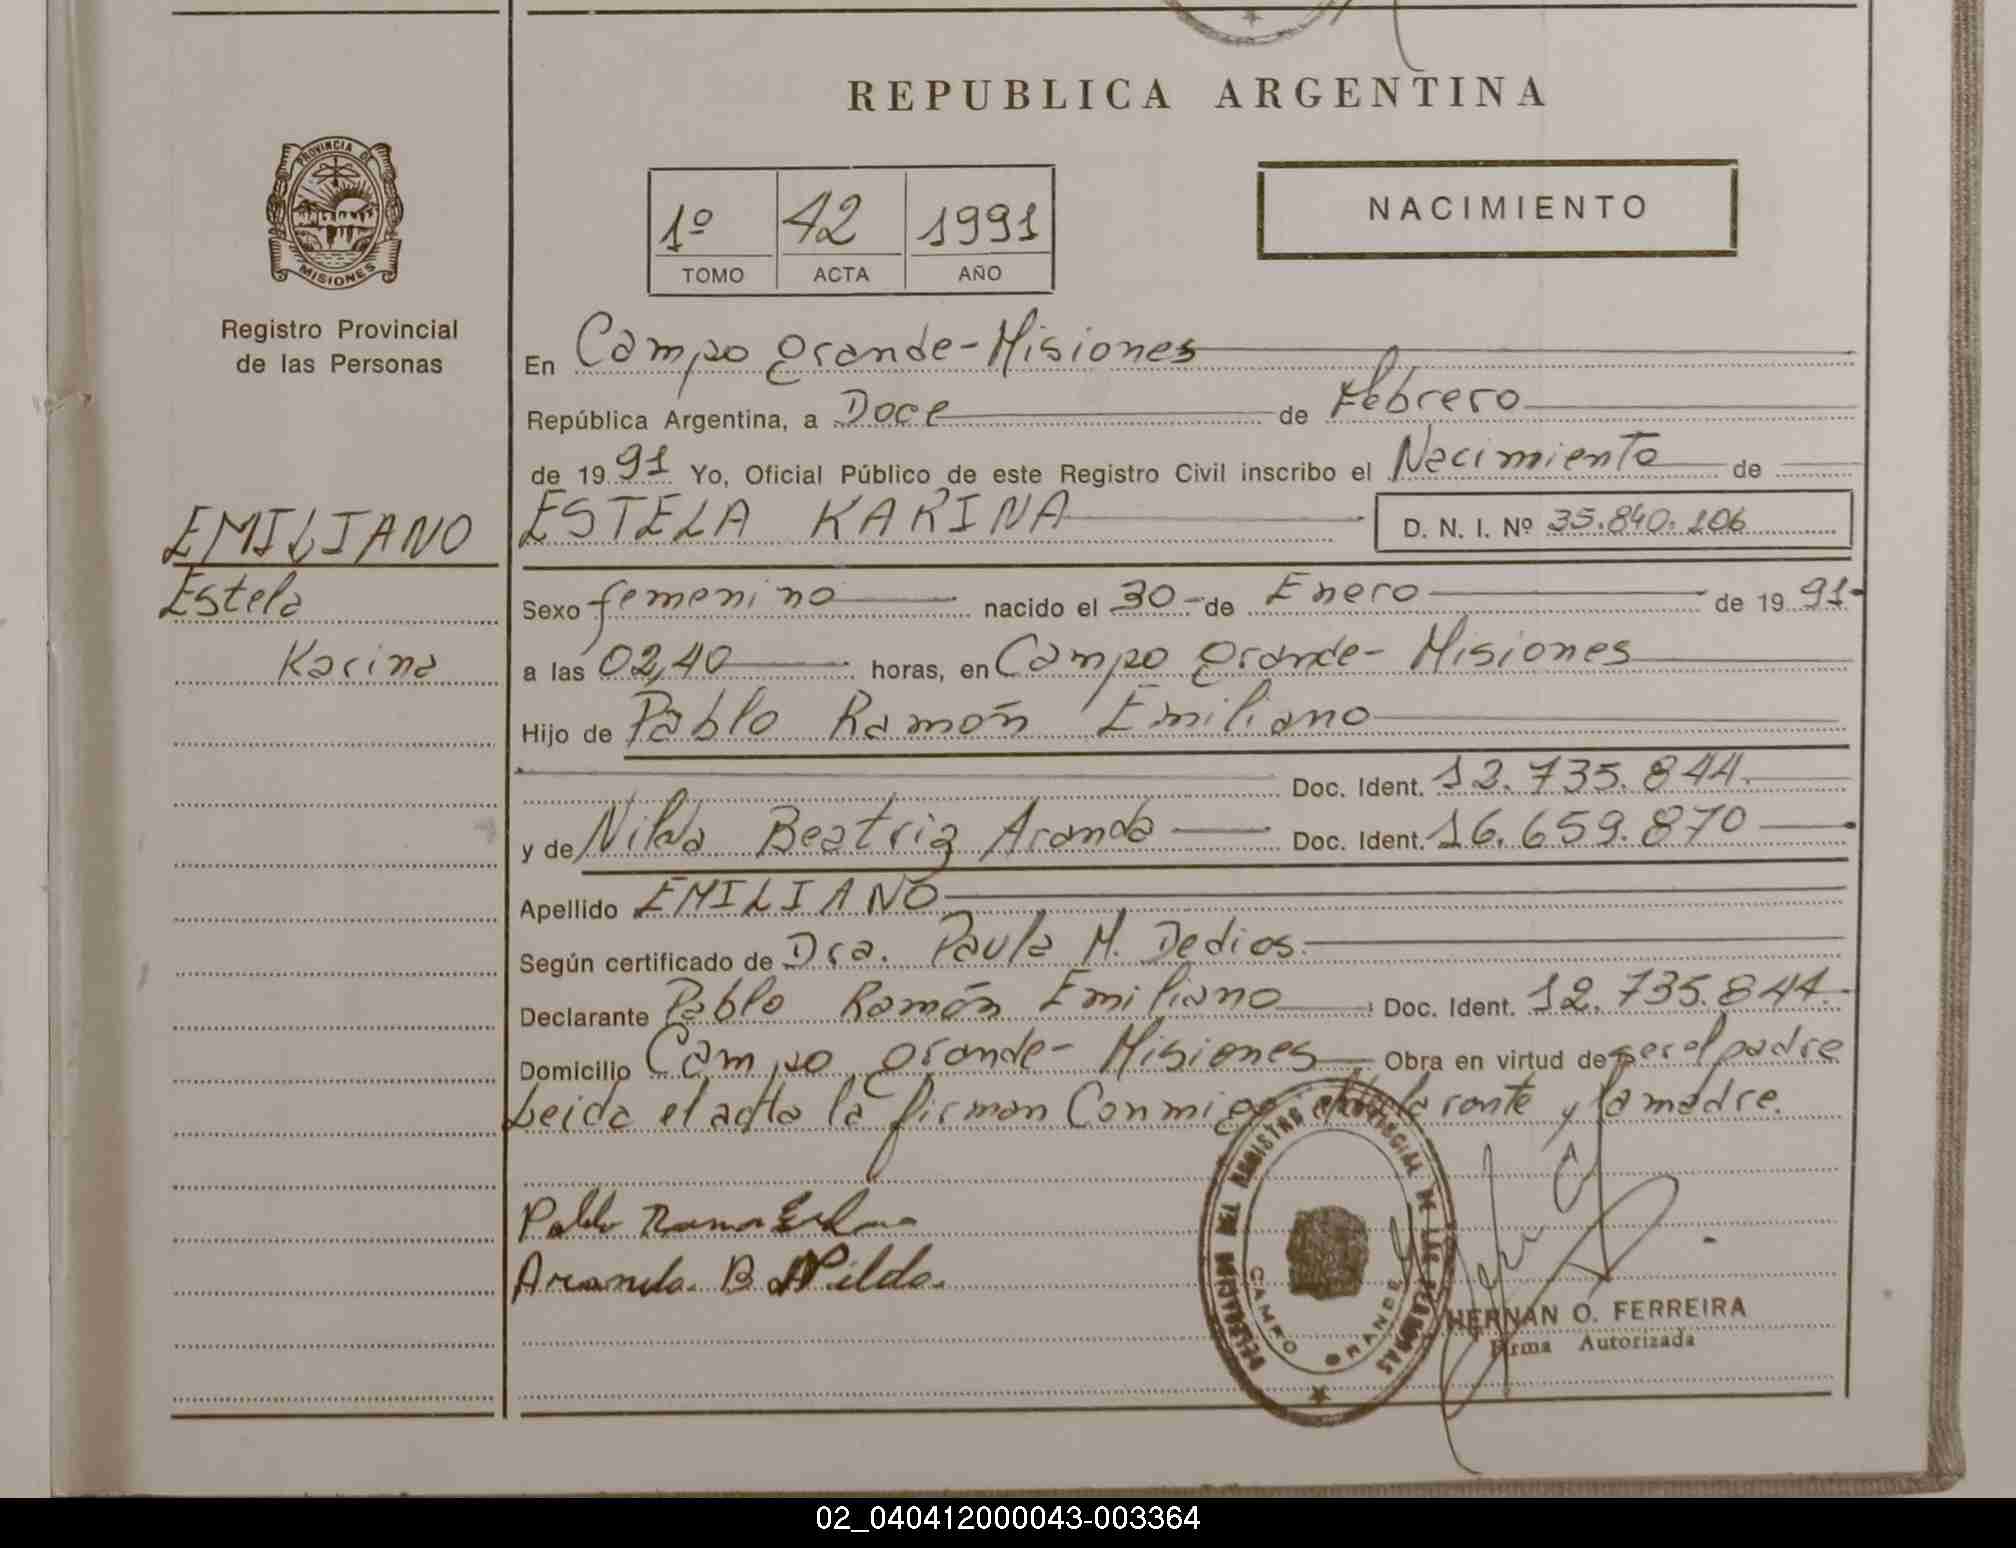 REPUBLICA ARGENTINA
PROVINCIA DE MISIONES
Registro Provincial
de las Personas
1º 42 1991
TOMO ACTA AÑO
NACIMIENTO
En Campo Grande - Misiones
República Argentina, a Doce de Febrero
de 1991 Yo, Oficial Público de este Registro Civil inscribo el Nacimiento de
EMILIANO
Estela
Karina
ESTELA KARINA D. N. I. Nº 35.840.106
Sexo femenino nacido el 30 - de Enero de 1991-
a las 02,40 horas, en Campo Grande - Misiones
Hijo de Pablo Ramón Emiliano
Doc. Ident. 12.735.844.
y de Nilda Beatriz Aranda Doc. Ident. 16.659.870
Apellido EMILIANO
Según certificado de Dra. Paula M. Dedios.
Declarante Pablo Ramón Emiliano Doc. Ident. 12.735.844.
Domicilio Campo Grande - Misiones Obra en virtud de ser el padre
Leida el acta la firman Conmigo declarante y la madre.
Pablo Ramon
Aranda. B. Nilda.
DELEGACION DEL REGISTRO PROVINCIAL DE LAS PERSONAS
CAMPO GRANDE
HERNAN O. FERREIRA
Firma Autorizada
02_040412000043-003364